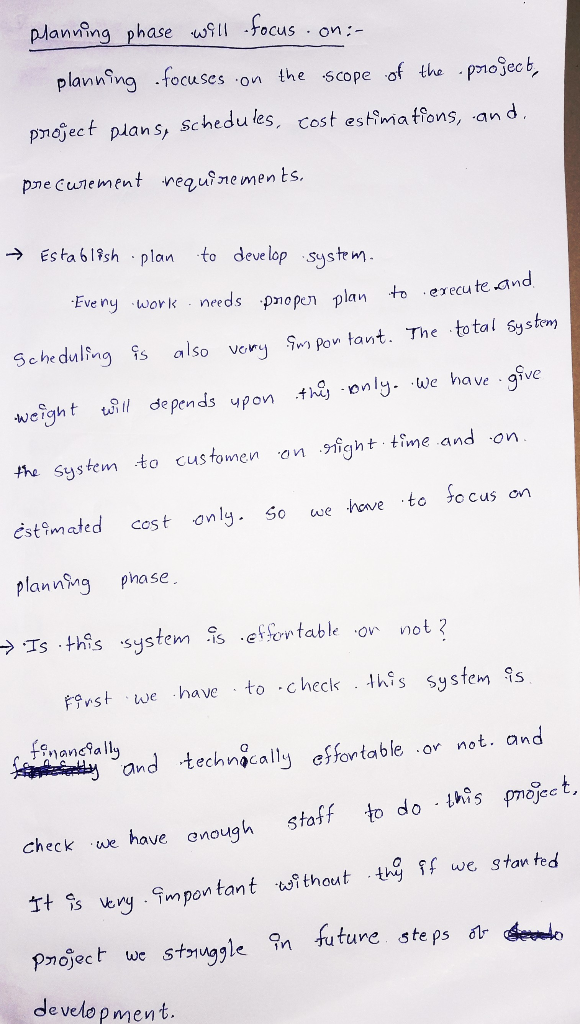 planning phase will focus on:-
planning focuses on the scope of the project,
project plans, schedules, cost estimations, and
precurement requirements.
→ Establish plan to develop system.
Every work needs proper plan to execute and
scheduling is also very important. The total system
weight will depends upon this only. We have give
the system to customer on right time and on
estimated cost only. so we have to focus on
planning phase.
→ Is this system is effortable or not?
First we have to check this system is
financially and technically effortable or not. and
check we have enough staff to do this project,
It is very important without this if we started
project we struggle in future steps of
development.